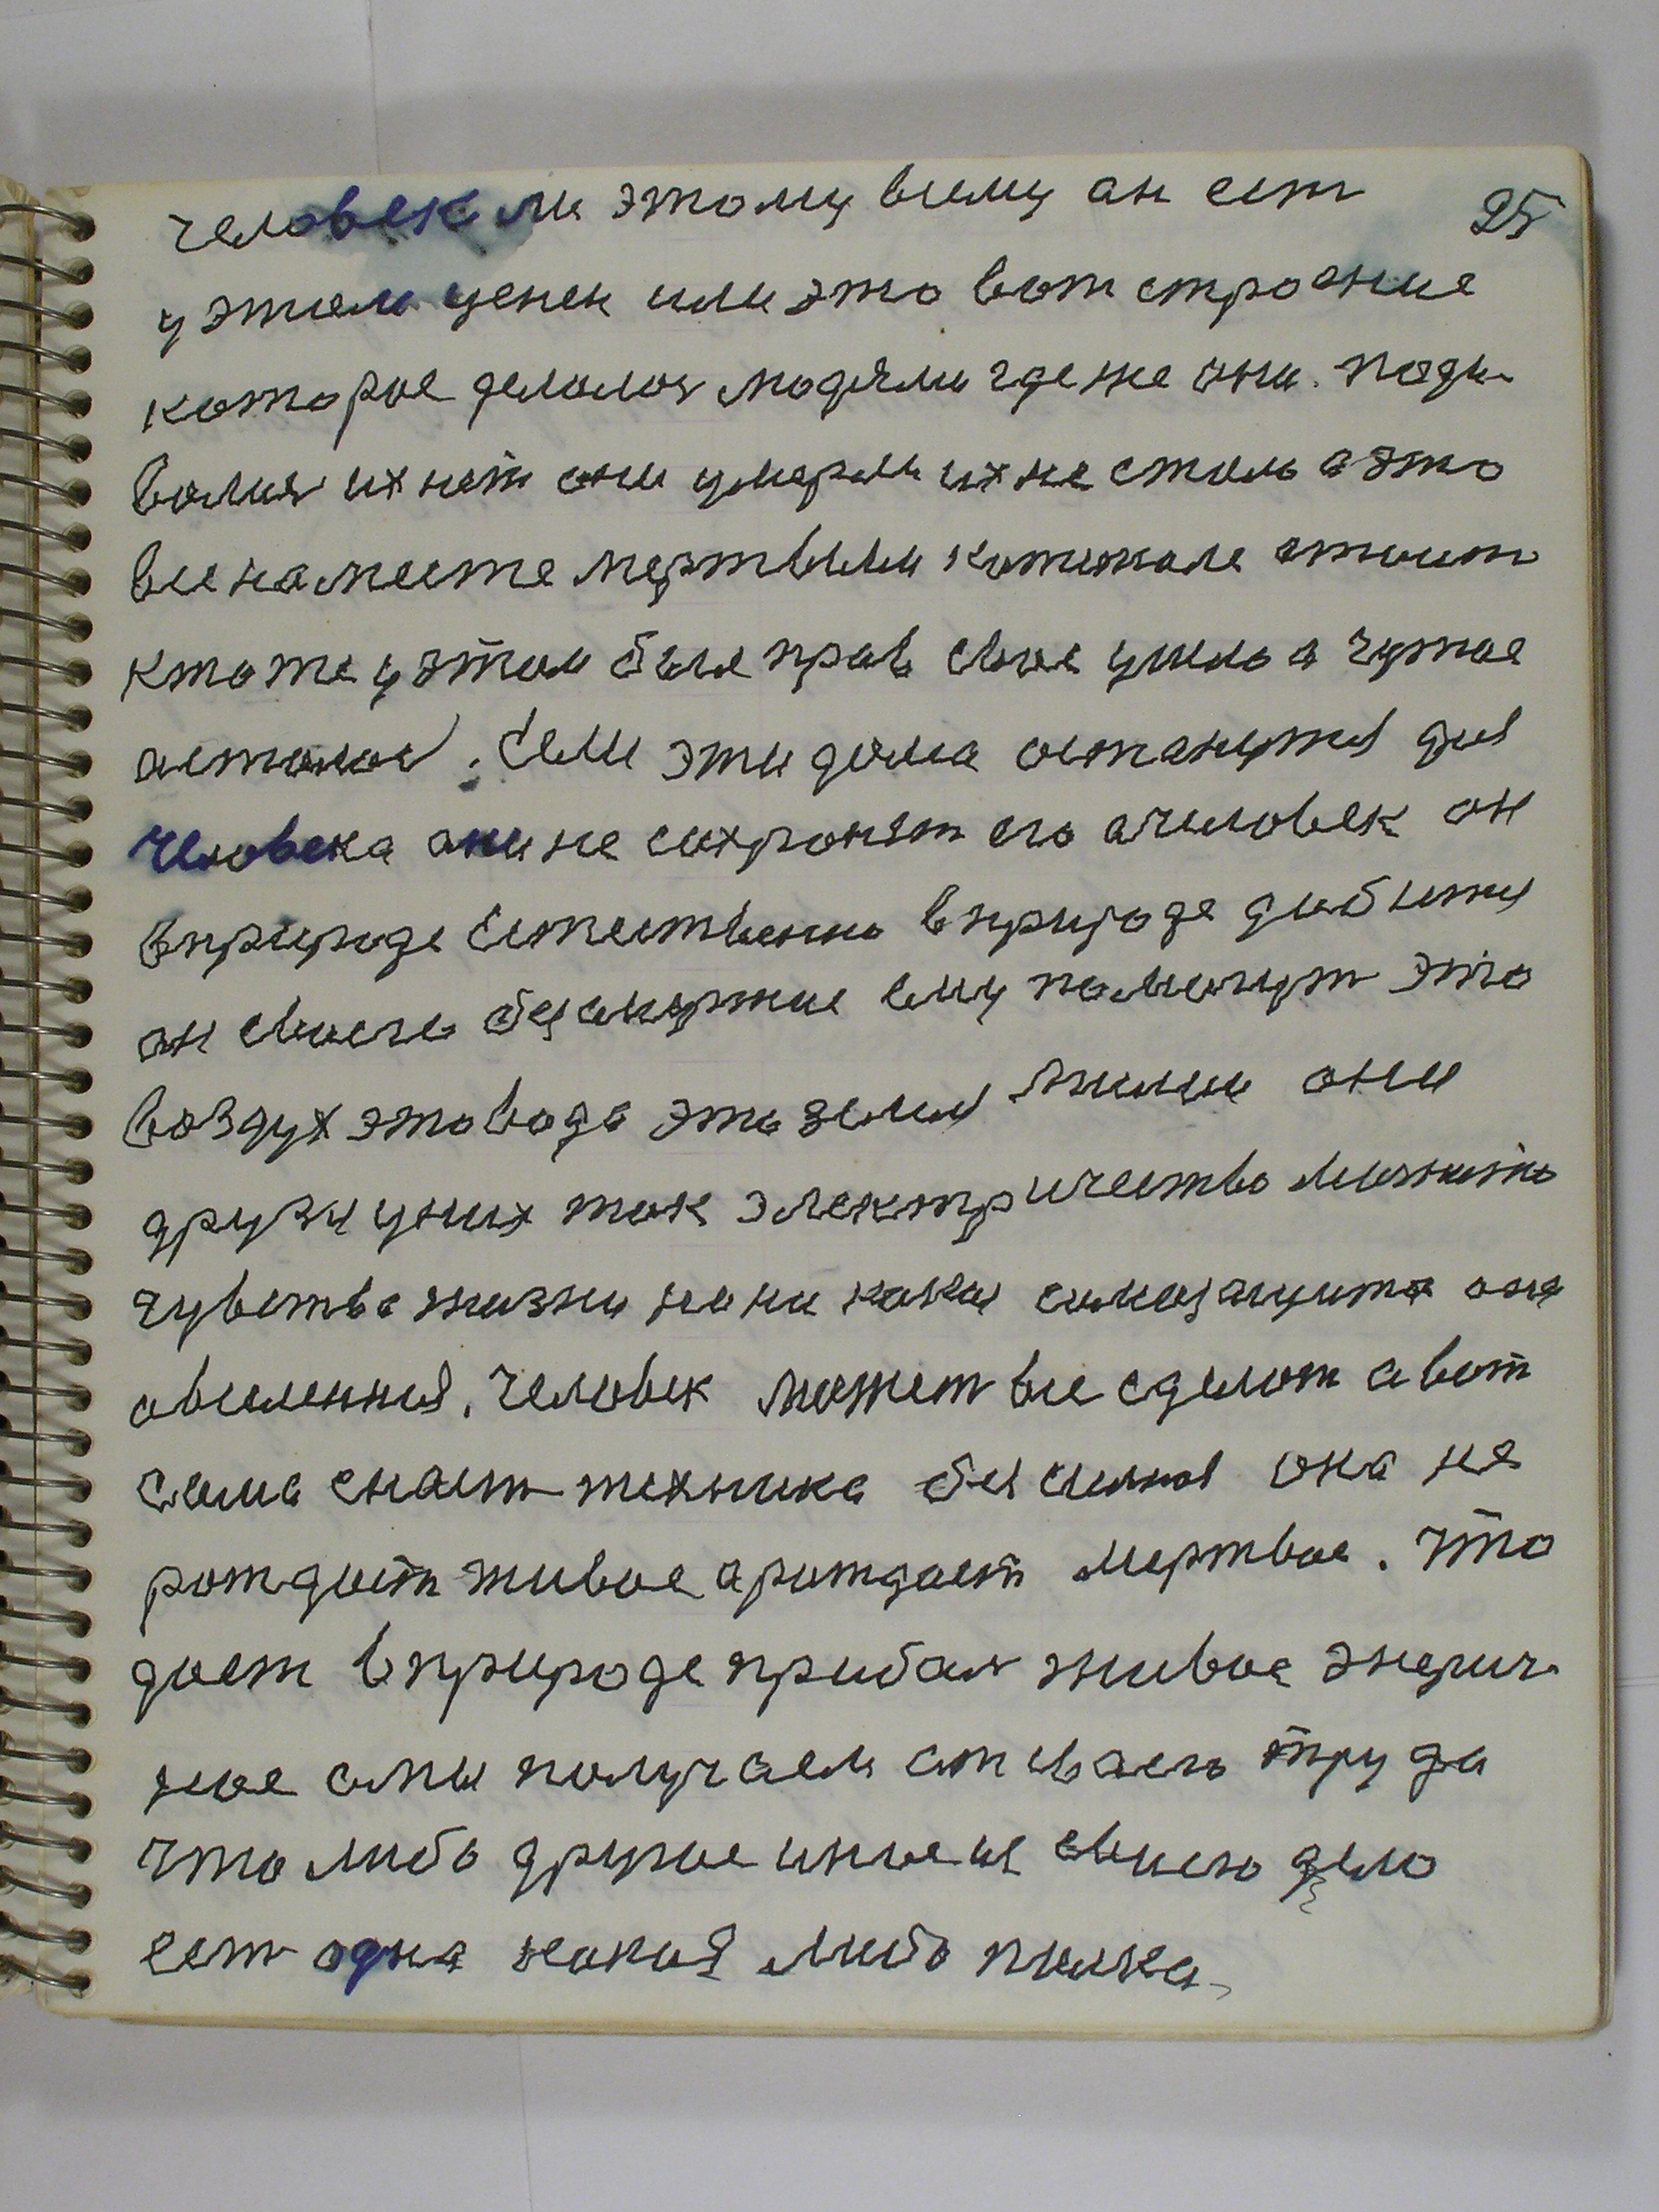 человек ли этому всему он ест 25
у этом ценен или это вот строение
которое делалос людями где же они. поди-
волися их нет они умерли их не стало а это
все на месте мертвым капиталом стоит
кто же у этом был прав свое ушло а чужое
осталос. Если эти дома останутся для
человека они не сохронят его а человек он
в природе естественно в природе добется
он своего безсмертие ему помогут это
воздух это вода это земля милые они
друзя у них ток электричество магнито
чувство жизни на них какая самозащита она
овселенная. Человек может все сделат а вот
сама сналт техника бессилная она не
рождает живое а рождает мертвое. Что
дает в природе прибал живое энергич-
ное а мы получаем от своего труда
что либо другое иное из своего дело
ест одна какая либо пилка